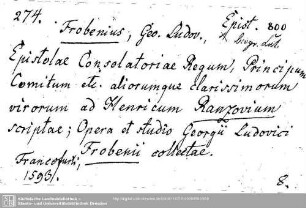 274.
Frobenius, Geo. Ludov.,
Epist. 800
Epistolae Consolatoriae Regum, Principum
Comitum etc. aliorumque clarissimorum
virorum ad Henricum Ranzovium
scriptae; Opera et studio Georgii Ludovici
Frobenii collectae.
Francofurti,
1593.
8.